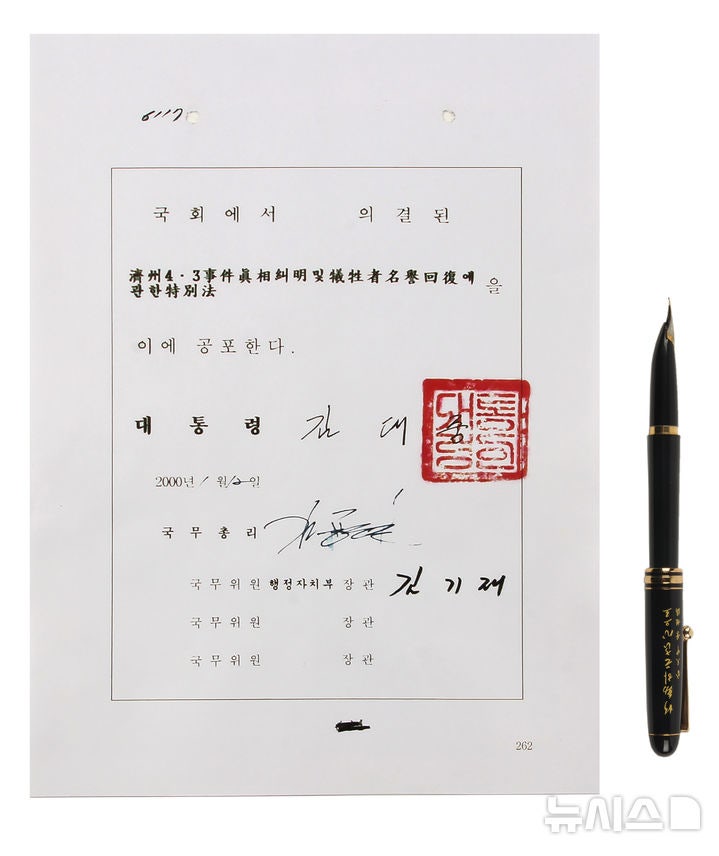 6117
국회에서 의결된
濟州4·3事件眞相糾明및犧牲者名譽回復에
관한特別法 을
이에 공포한다.
대통령 김대중
2000년 1월 12일
국무총리
국무위원 행정자치부 장관 김기재
국무위원 장관
국무위원 장관
262
뉴시스